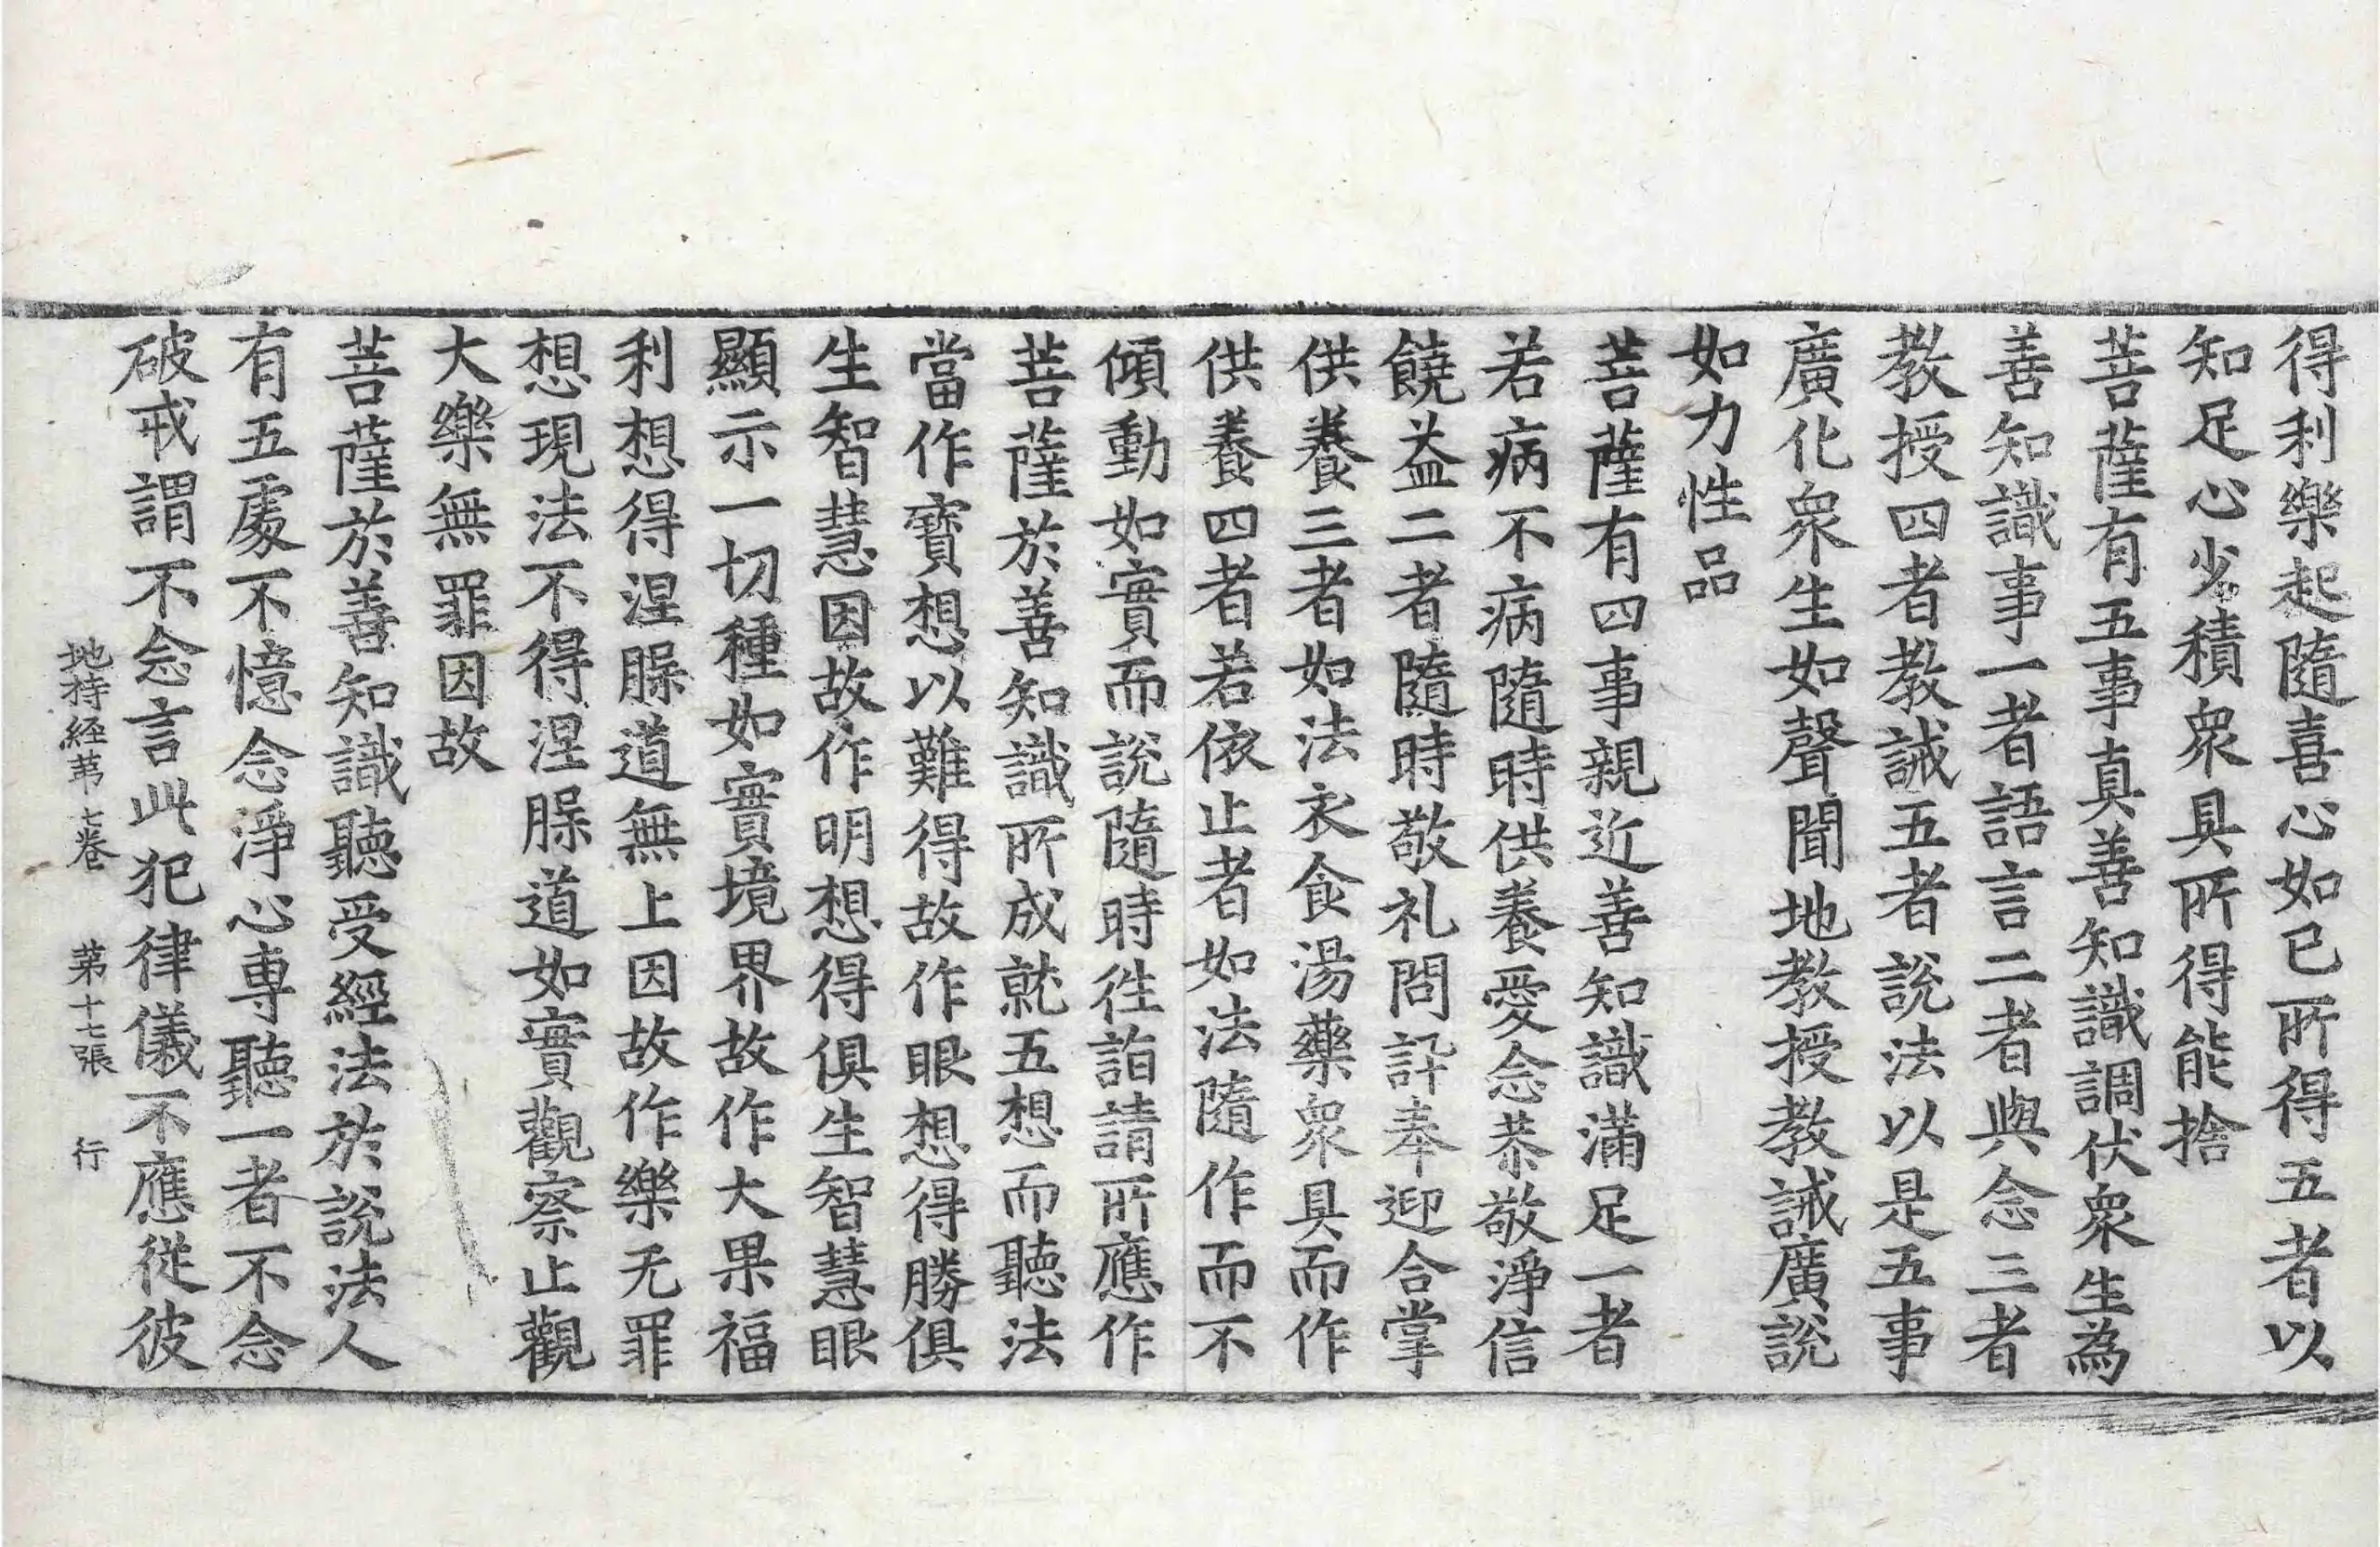 得利樂起隨喜心如已所得五者以
知足心少積衆具所得能捨
菩薩有五事真善知識調伏衆生為
善知識事一者語言二者與念三者
教授四者教誡五者說法以是五事
廣化衆生如聲聞地教授教誡廣說
如力性品
菩薩有四事親近善知識滿足一者
若病不病隨時供養愛念恭敬淨信
饒益二者隨時敬礼問訊奉迎合掌
供養三者如法衣食湯藥衆具而作
供養四者若依止者如法隨作而不
傾動如實而說隨時徃詣請所應作
菩薩於善知識所成就五想而聽法
當作寶想以難得故作眼想得勝俱
生智慧因故作明想得俱生智慧眼
顯示一切種如實境界故作大果福
利想得涅腂道無上因故作樂无罪
想現法不得涅腂道如實觀察止觀
大樂無罪因故
菩薩於善知識聽受經法於說法人
有五處不憶念淨心專聽一者不念
破戒謂不念言此犯律儀不應從彼
地持経苐七卷 苐十七張 行